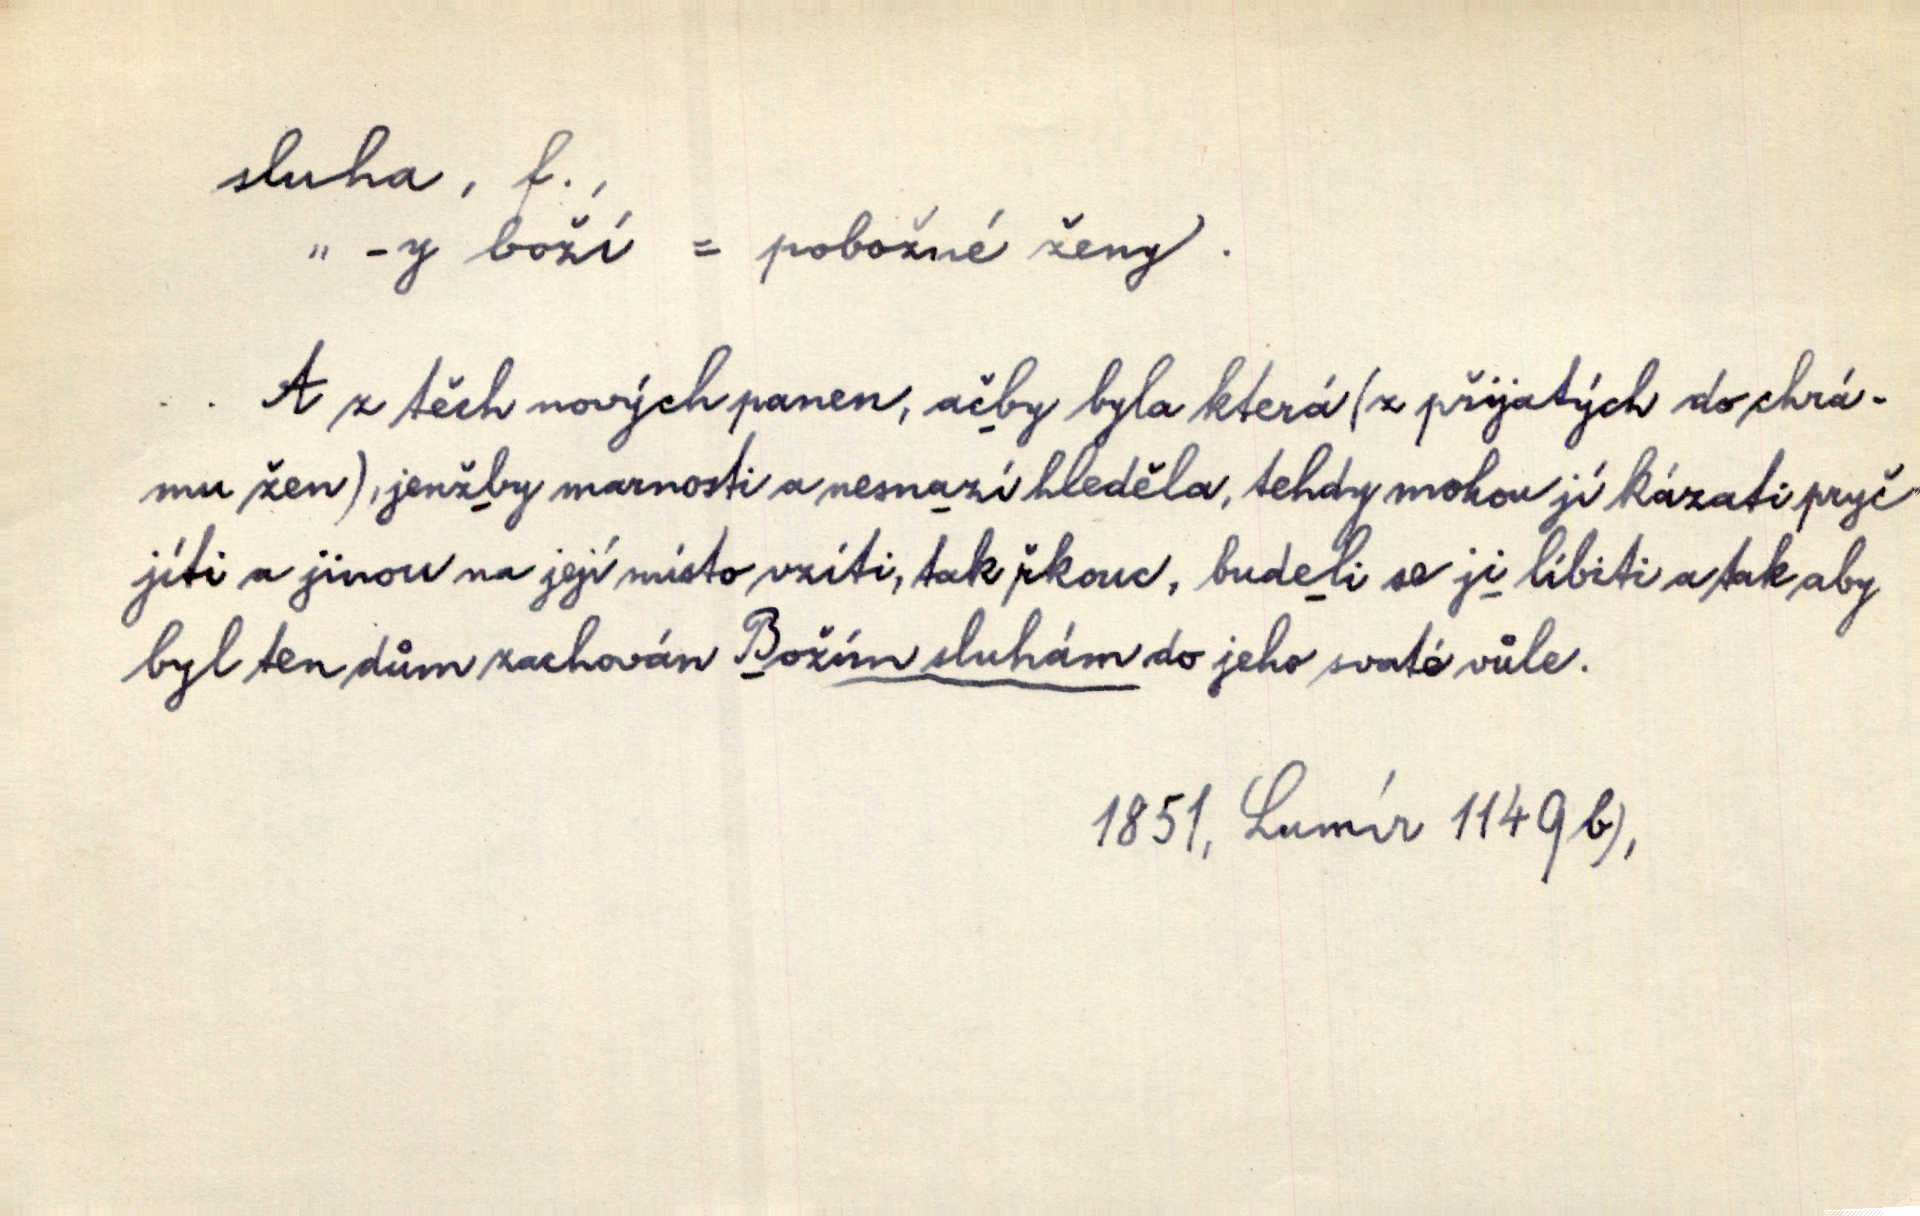 sluha, f.,
" -y boží = pobožné ženy.
.. A z těch nových panen, ačby byla která (z přijatých do chrá-
mu žen), jenžby marnosti a nesnazí hleděla, tehdy mohou jí kázati pryč
jíti a jinou na její místo vzíti, tak řkouc, budeli se ji líbiti a tak aby
byl ten dům zachován Božím sluhám do jeho svaté vůle.
1851, Lumír 1149 b),